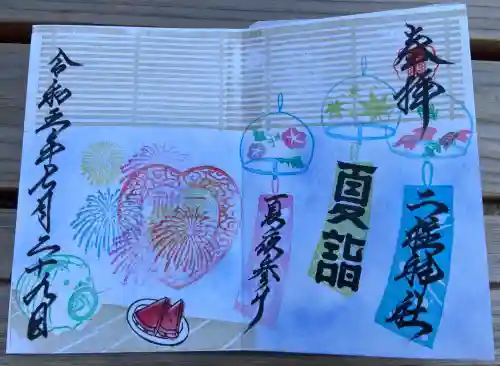 奉拝
二柱神社
夏詣
令和三年七月二十九日